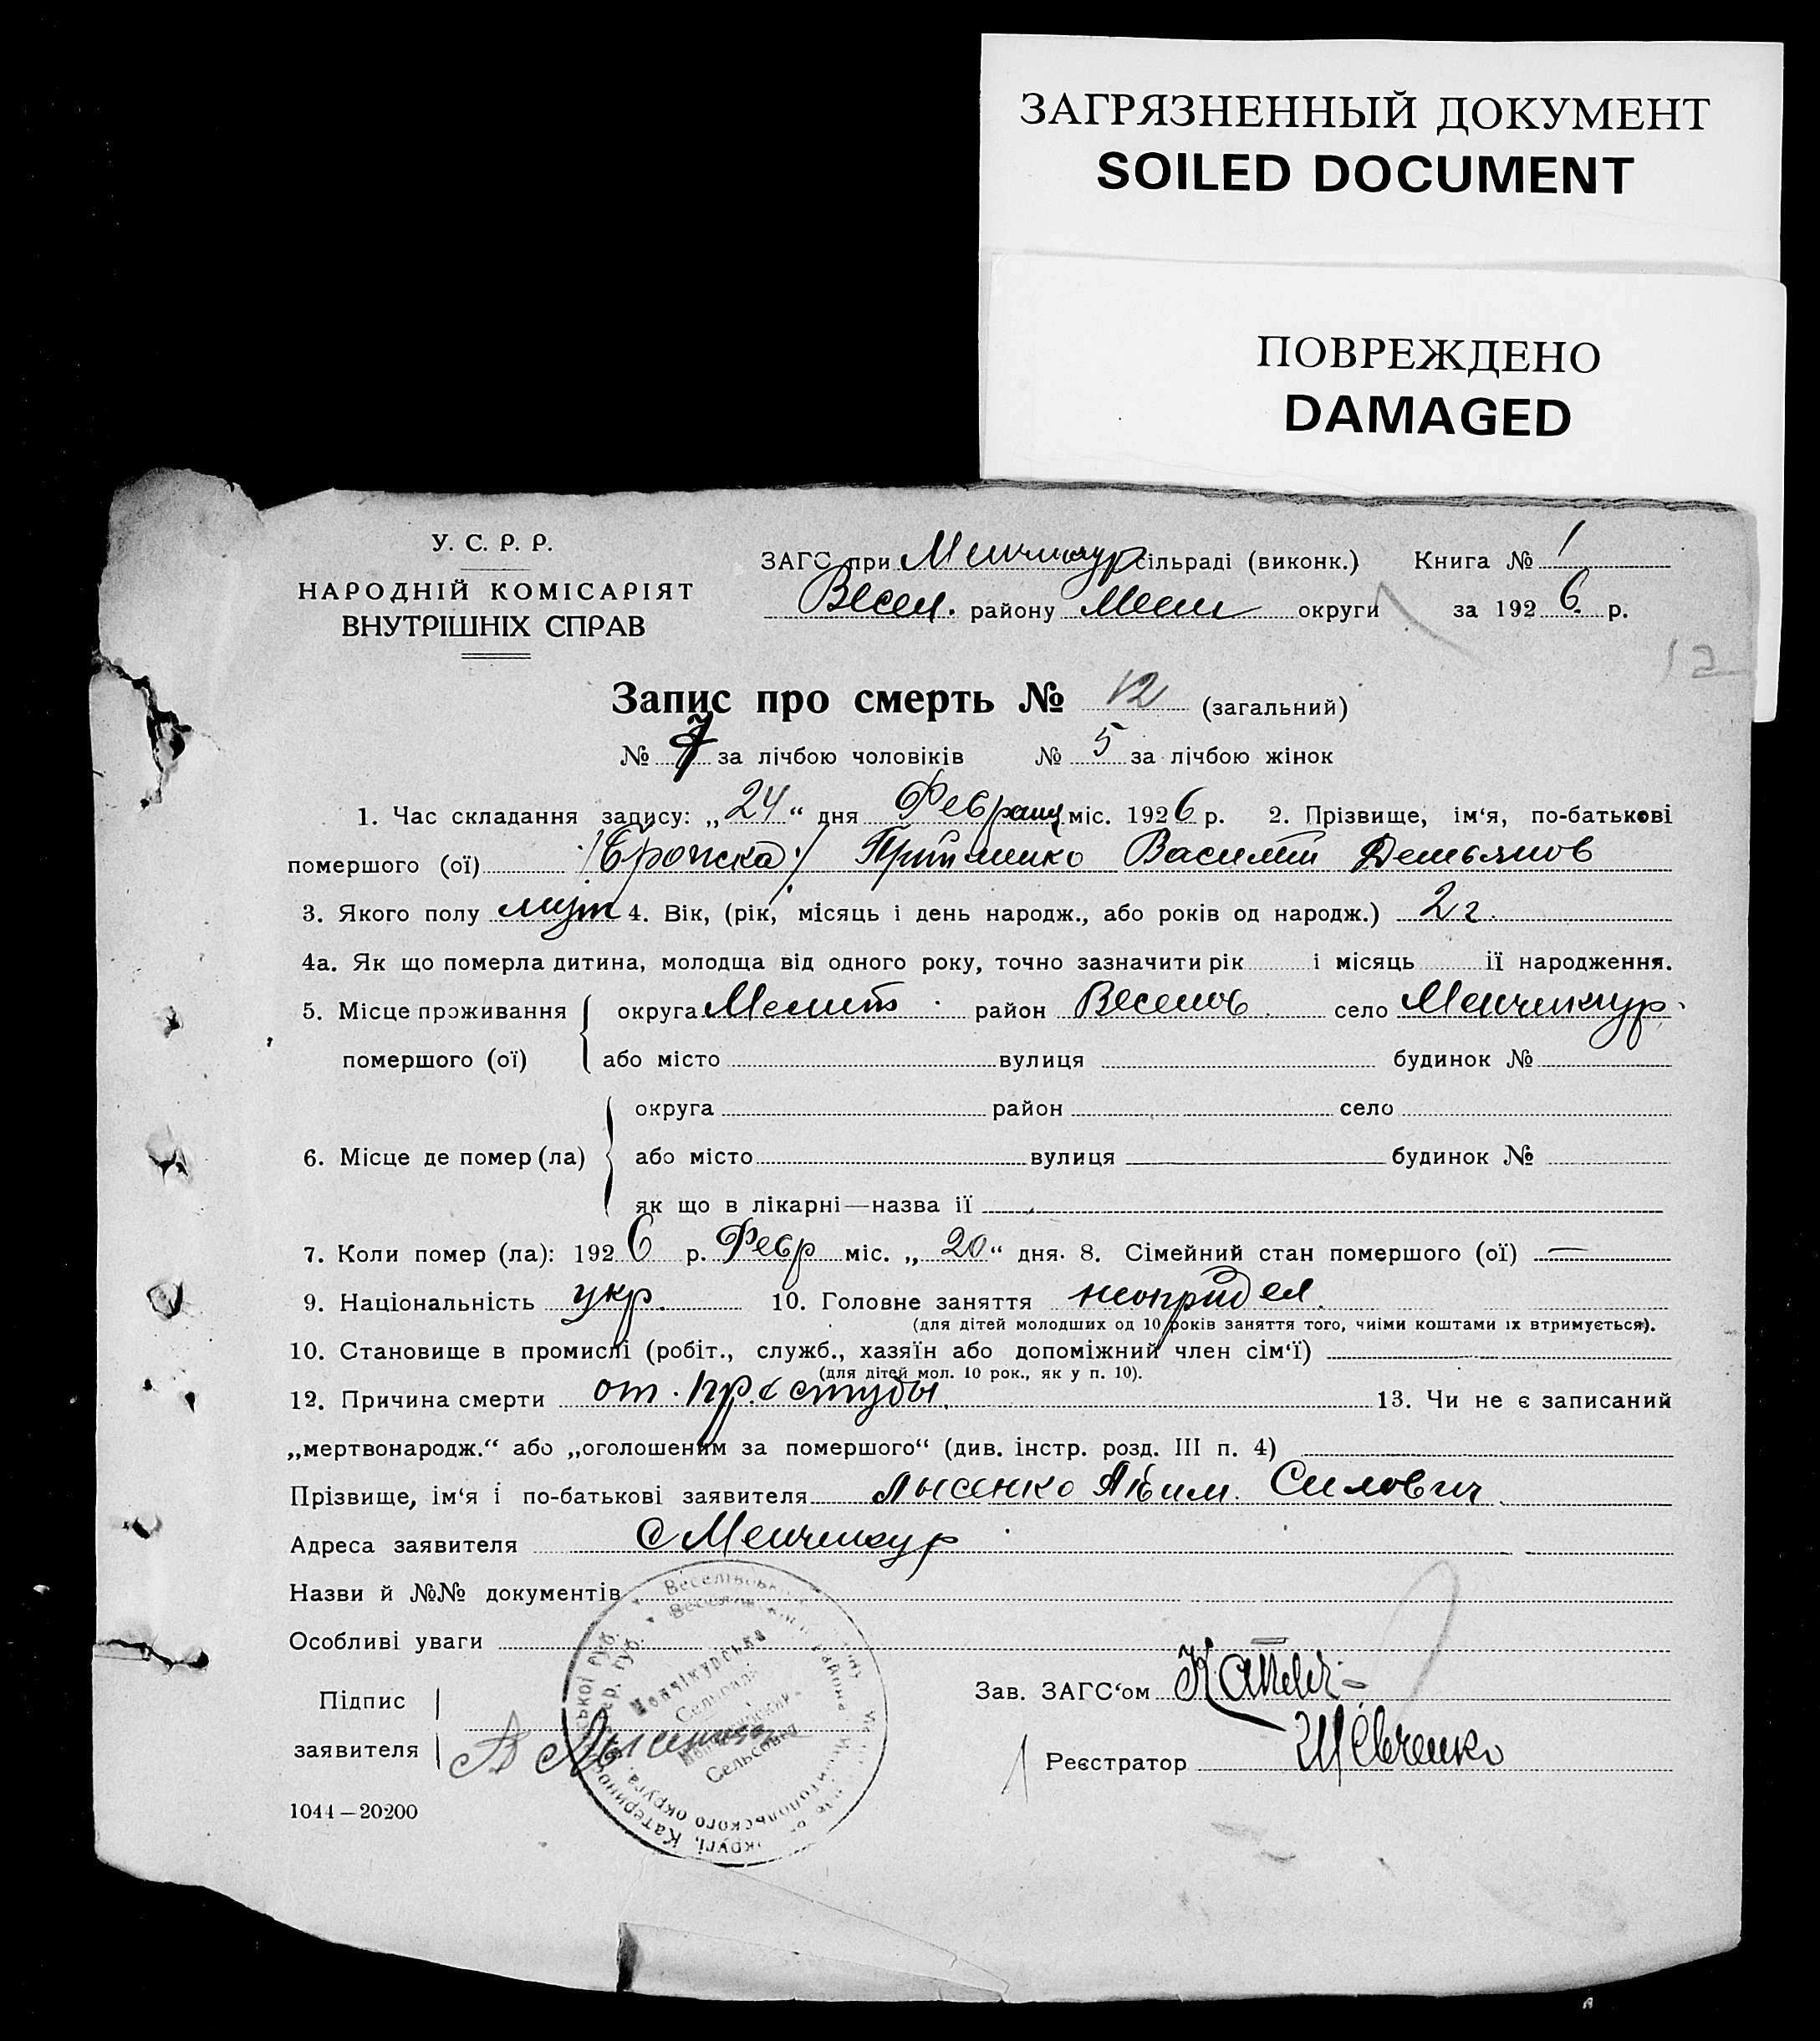 ЗАГРЯЗНЕННЫЙ ДОКУМЕНТ
SOILED DOCUMENT
ПОВРЕЖДЕНО
DAMAGED
У. С. Р. Р.
НАРОДНІЙ КОМІСАРІЯТ
ВНУТРІШНІХ СПРАВ
ЗАГС при Менчикур сільраді (виконк.) Книга № 1
Весел. району Мелит округи за 1926 р.
12
Запис про смерть № 12 (загальний)
№ 7 за лічбою чоловіків № 5 за лічбою жінок
1. Час складання запису: „24“ дня Февраля міс. 1926 р. 2. Прізвище, ім‘я, по-батькові
помершого (ої) Василий Демьянов
3. Якого полу муж 4. Вік, (рік, місяць і день народж., або років од народж.) 2 г.
4а. Як що померла дитина, молодща від одного року, точно зазначити рік і місяць її народження.
5. Місце проживання округа Мелит район Веселов село Менчикур
помершого (ої) або місто вулиця будинок №
округа район село
6. Місце де помер (ла) або місто вулиця будинок №
як що в лікарні—назва її
7. Коли помер (ла): 1926 р. Февр міс. „20“ дня. 8. Сімейний стан помершого (ої) —
9. Національність укр. 10. Головне заняття
(для дітей молодших од 10 років заняття того, чиїми коштами їх втримується).
10. Становище в промислі (робіт., служб., хазяїн або допоміжний член сім‘ї)
(для дітей мол. 10 рок., як у п. 10).
12. Причина смерти от простуды. 13. Чи не є записаний
„мертвонародж.“ або „оголошеним за помершого“ (див. інстр. розд. III п. 4)
Прізвище, ім‘я і по-батькові заявителя Лысенко Силович
Адреса заявителя с Менчикур
Назви й №№ документів
Особливі уваги
Підпис
заявителя А Лысенко
Зав. ЗАГС‘ом
Реєстратор Шевченко
Менчікурська
Сельсовет
Мелитопольского округа
1044—20200